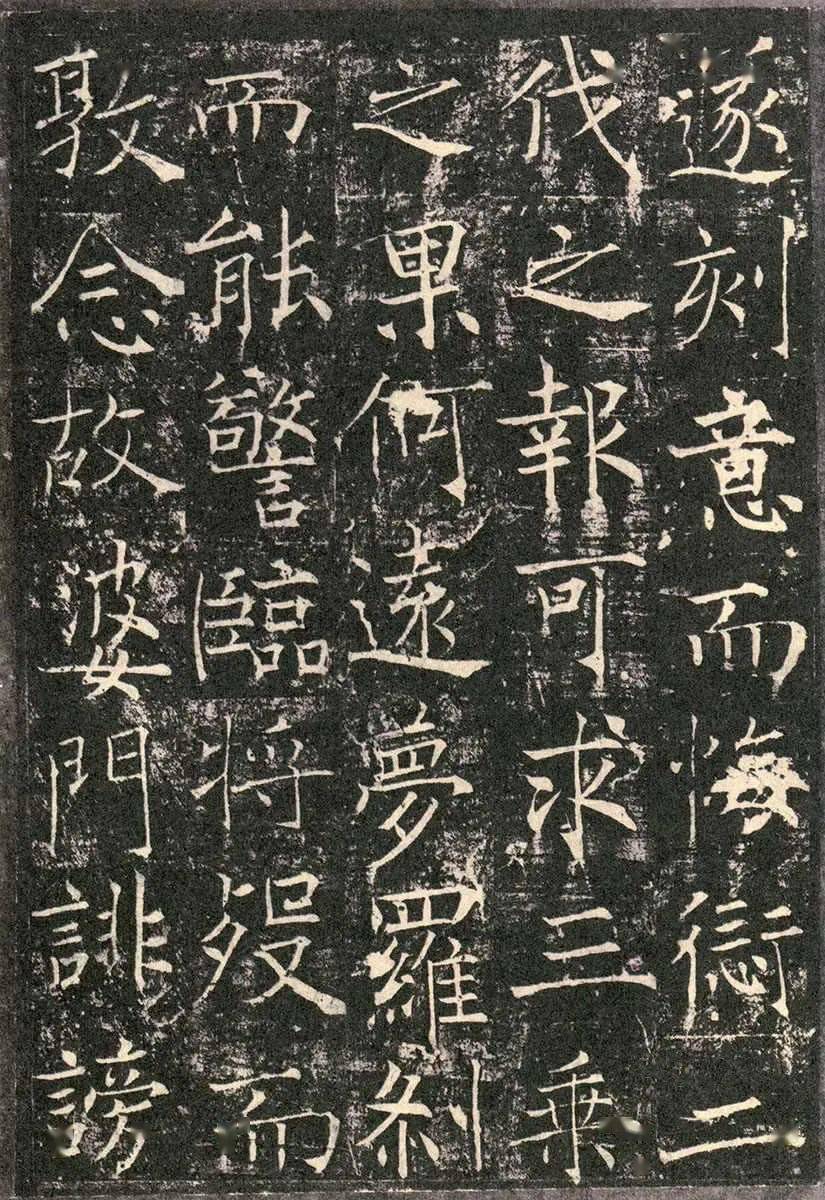 遂刻意而悔愆二
伐之報可求三乗
之果何遠夢羅刹
而能警臨将歿而
敦念故婆門誹謗